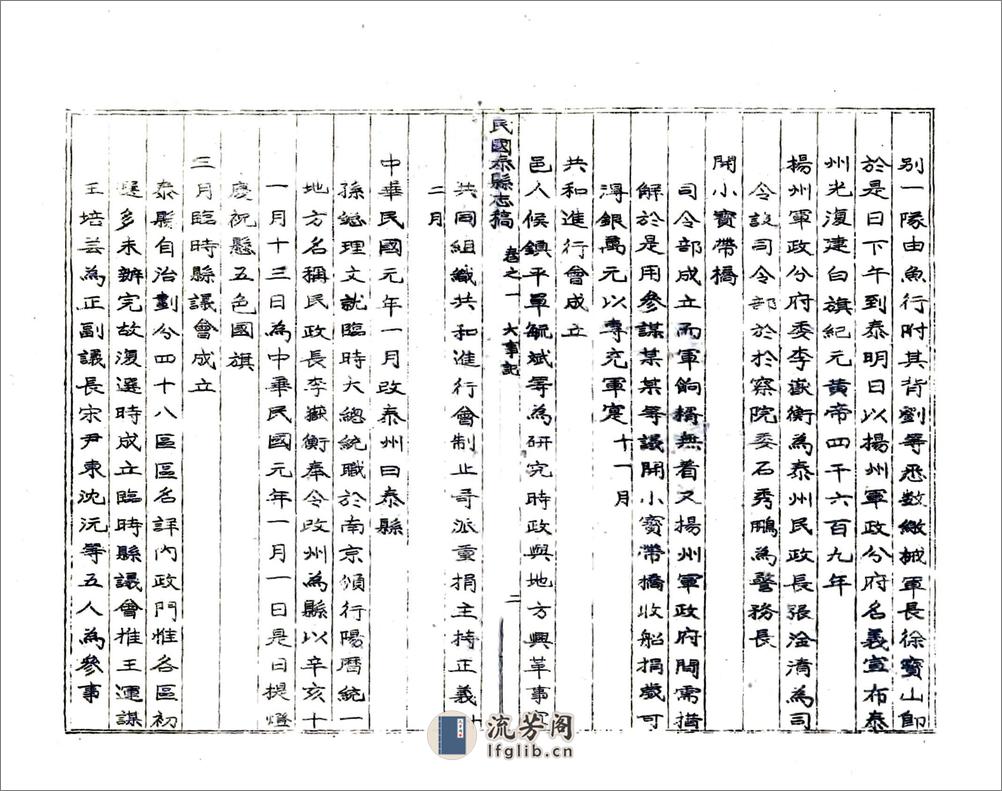 別一隊由魚行附其背劉等悉數繳械軍長徐寳山即
於是日下午到泰明日以揚州軍政分府名義宣布泰
州光復建白旗紀元黃帝四千六百九年
揚州軍政分府委李嶽衡為泰州民政長張淦清為司
令設司令部於於察院委石秀鵬為警務長
開小寳帶橋
司令部成立而軍餉措無着又揚州軍政府間需措
解於是用參謀某某等議開小寳帶橋收船捐歲可
淂銀萬元以專充軍寔十一月
共和進行會成立
邑人侯鎮平單毓斌等為研究時政與地方興革事宜
共同組織共和進行會制止哥派重捐主持正義十
二月
民國泰縣志稿 卷之一 大事記 二
中華民國元年一月改泰州曰泰縣
孫總理文就臨時大總統職於南京頒行陽曆統一
地方名稱民政長李嶽衡奉令改州為縣以辛亥十
一月十三日為中華民國元年一月一日是日提燈
慶祝懸五色國旗
三月臨時縣議會成立
泰縣自治劃分四十八區區名詳內政門惟各區初
選多未辦完故復選時成立臨時縣議會推王運謀
王培芸為正副議長宋尹東沈沅等五人為參事
流芳阁
lfglib.cn